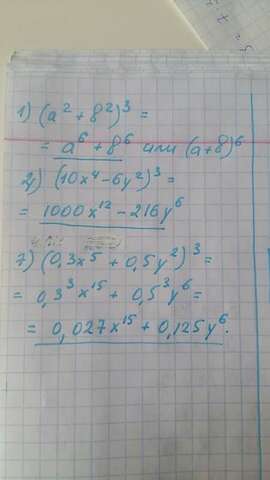 1) (a² + 8²)³ =
= a⁶ + 8⁶ или (a+8)⁶
2) (10x⁴ - 6y²)³ =
= 1000x¹² - 216y⁶
7) (0,3x⁵ + 0,5y²)³ =
= 0,3³x¹⁵ + 0,5³y⁶ =
= 0,027x¹⁵ + 0,125y⁶.